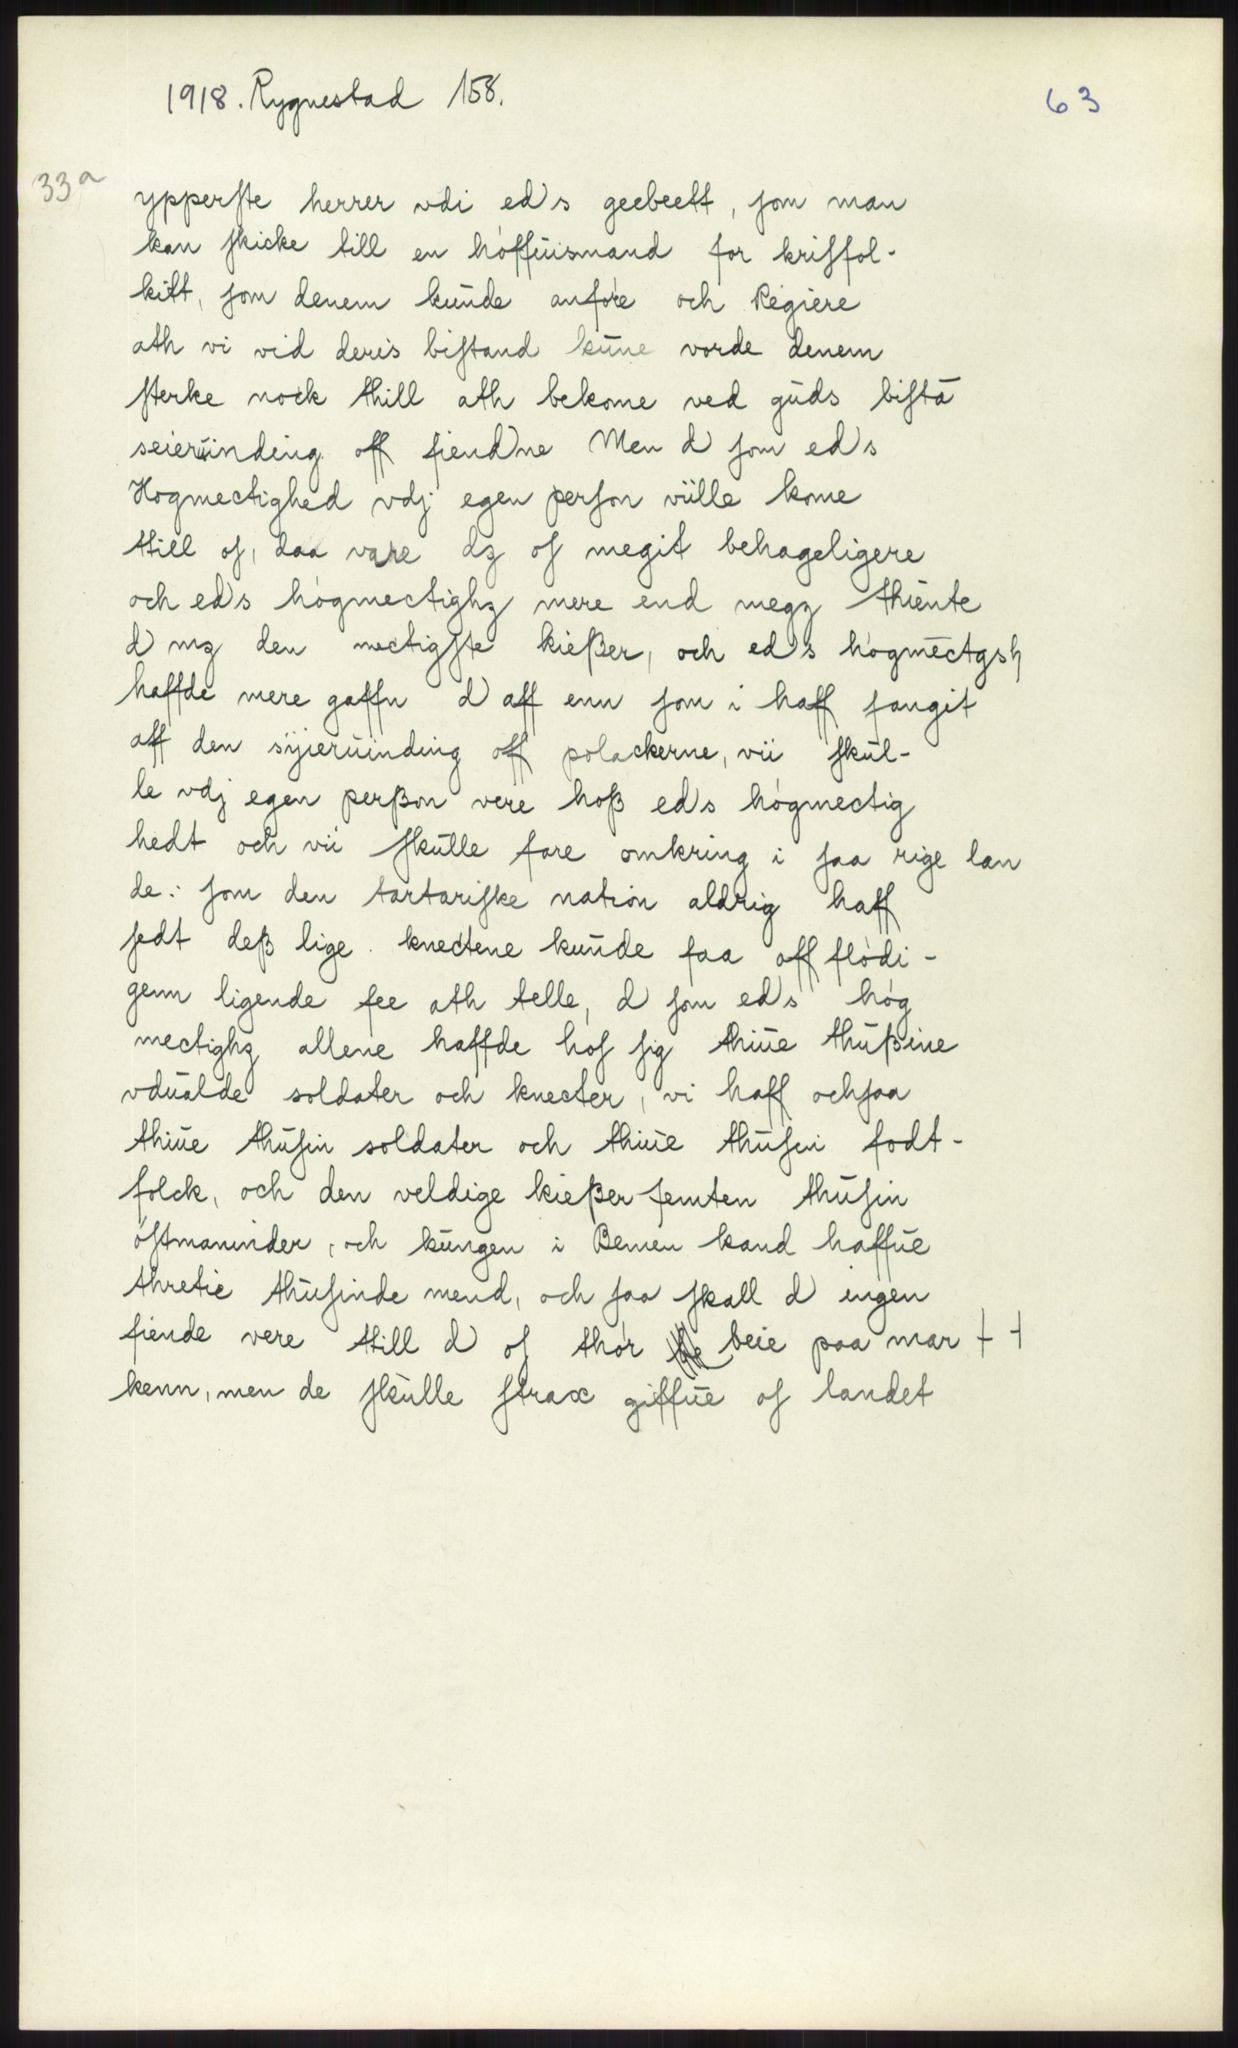 1918. Rygnestad 158.
63
33a
ypperſte herrer vdi ed's geebeett, ſom man
kan ſkicke till en hóffuismand for kriſfol-
kitt, ſom denem kunde anfóre och Regiere
ath vi vid deris biſtand kune vorde denem
ſterke nock thill ath bekome ved guds biſtā
seieruinding off fiend'ne Men d ſom ed's
Hogmectighed vdj egen perſon viille kome
till oſ, daa vare dz oſ megit behageligere
och ed's hógmectighz mere end megz thiente
d mz den mectigſte kießer, och ed's hógmectgsh
haffde mere gaffn d aff enn ſom i haff fangit
aff den syieruinding off polackerne, vii ſkul-
le vdj egen perßon vere hoß ed's hógmectig
hedt och vii ſkulle fare omkring i ſaa rige lan
de: ſom den tartariſke nation aldrig haff
ſedt deß lige. knectene kunde faa aff flódi-
genn ligende fee ath telle, d ſom ed's hóg
mectighz allene haffde hoſ ſig thiue thußine
vdualde soldater och knecter, vi haff ochſaa
thiue thuſin soldater och thiue thuſen fodt-
folck, och den veldige kießer femten thuſin
óſtmaninder, och kungen i Bemen kand haffue
thretie thuſinde mend, och ſaa ſkall d ingen
fiende vere till d oſ thór beie paa mar ++
kenn, men de ſkulle ſtrax giffue oſ landet